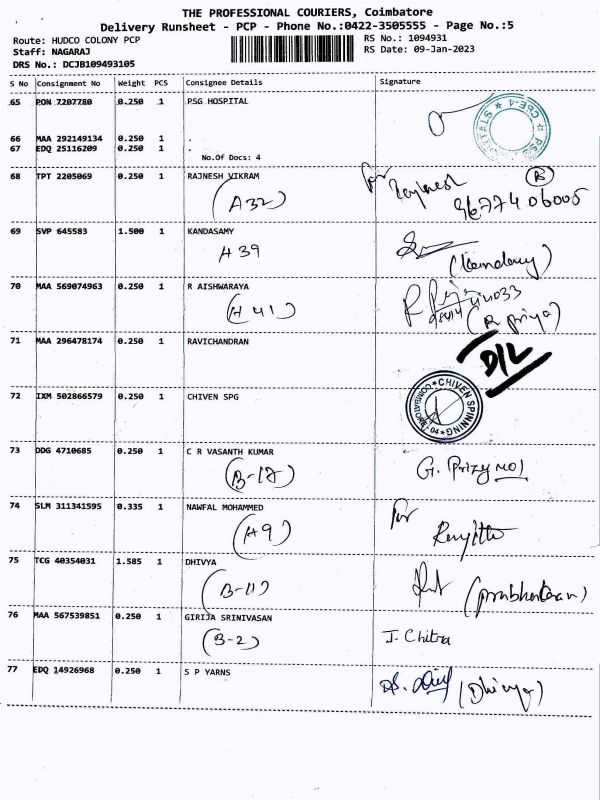 THE PROFESSIONAL COURIERS, Coimbatore
Delivery Runsheet - PCP - Phone No.:0422-3505555 - Page No.:5
Route: HUDCO COLONY PCP
RS No.: 1094931
Staff: NAGARAJ
RS Date: 09-Jan-2023
DRS No.: DCJB109493105
S No Consignment No Weight PCS Consignee Details Signature
65 PON 7207780 0.250 1 PSG HOSPITAL
66 MAA 292149134 0.250 1 .
67 EDQ 25116209 0.250 1 .
No.Of Docs: 4
68 TPT 2205069 0.250 1 RAJNESH VIKRAM
(A32)
for Rajnesh
B
9677406005
69 SVP 645583 1.500 1 KANDASAMY
H 39
70 MAA 569074963 0.250 1 R AISHWARAYA
(H 41)
(R Priya)
71 MAA 296478174 0.250 1 RAVICHANDRAN
D/L
72 IXM 502866579 0.250 1 CHIVEN SPG
CHIVEN SPINNING
73 DDG 4710685 0.250 1 C R VASANTH KUMAR
(B-17)
74 SLM 311341595 0.335 1 NAWFAL MOHAMMED
(H9)
for
75 TCG 40354031 1.585 1 DHIVYA
(B-11)
(Prabhakaran)
76 MAA 567539851 0.250 1 GIRIJA SRINIVASAN
(B-2)
J. Chitra
77 EDQ 14926968 0.250 1 S P YARNS
(Dhivya)